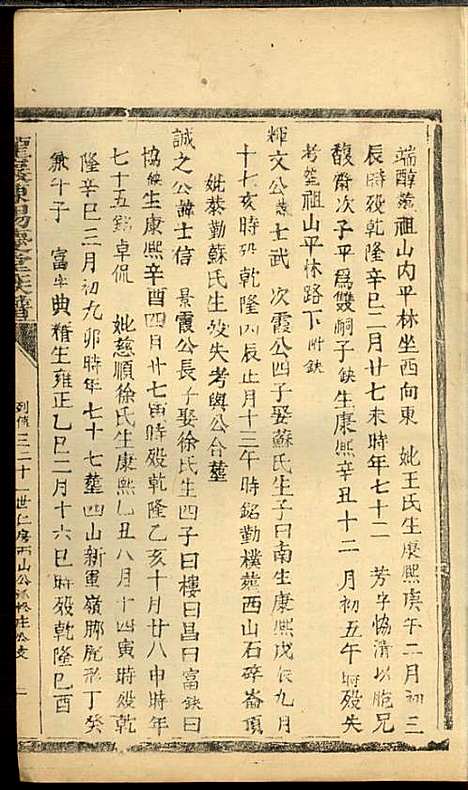 端醇葬祖山内平林坐西向東　妣王氏生康熙庚午二月初三
辰時殁乾隆辛巳二月廿七未時年七十二　芳字恊清以胞兄
馥齋次子平爲雙嗣子缺生康熙辛丑十二月初五午時殁失
考葬祖山平林路下 所缺
輝文公 士武　次霞公四子娶蘇氏生子曰南生康熙戊辰九月
十七亥時殁乾隆四辰正月十三午時銘勤樸葬西山石碎崙頂
妣恭勤蘇氏生殁失考與公合葬
誠之公諱士信　景霞公長子娶徐氏生四子曰樓曰昌曰富缺曰
協缺生康熙辛酉四月廿七寅時殁乾隆乙亥十月廿八申時年
七十五銘卓侃　妣慈順徐氏生康熙乙丑八月十四寅時殁乾
隆辛巳三月初九卯時年七十七葬四山新軍嶺 形丁癸
兼午子　富字典 生雍正乙巳二月十六巳時殁乾隆己酉
列傳 三二十一世仁房西山公派 庄公支